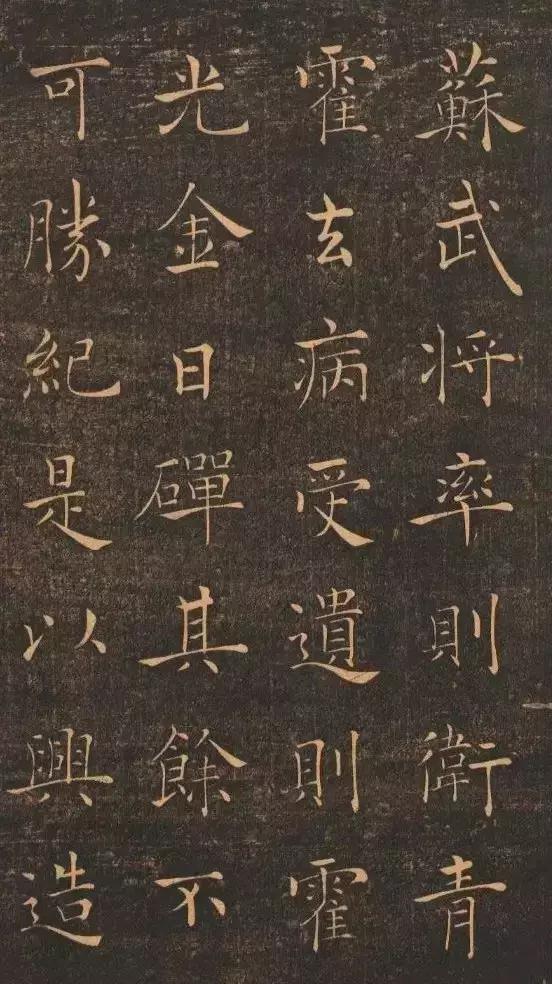 蘇武將率則衛青
霍去病受遺則霍
光金日磾其餘不
可勝紀是以興造